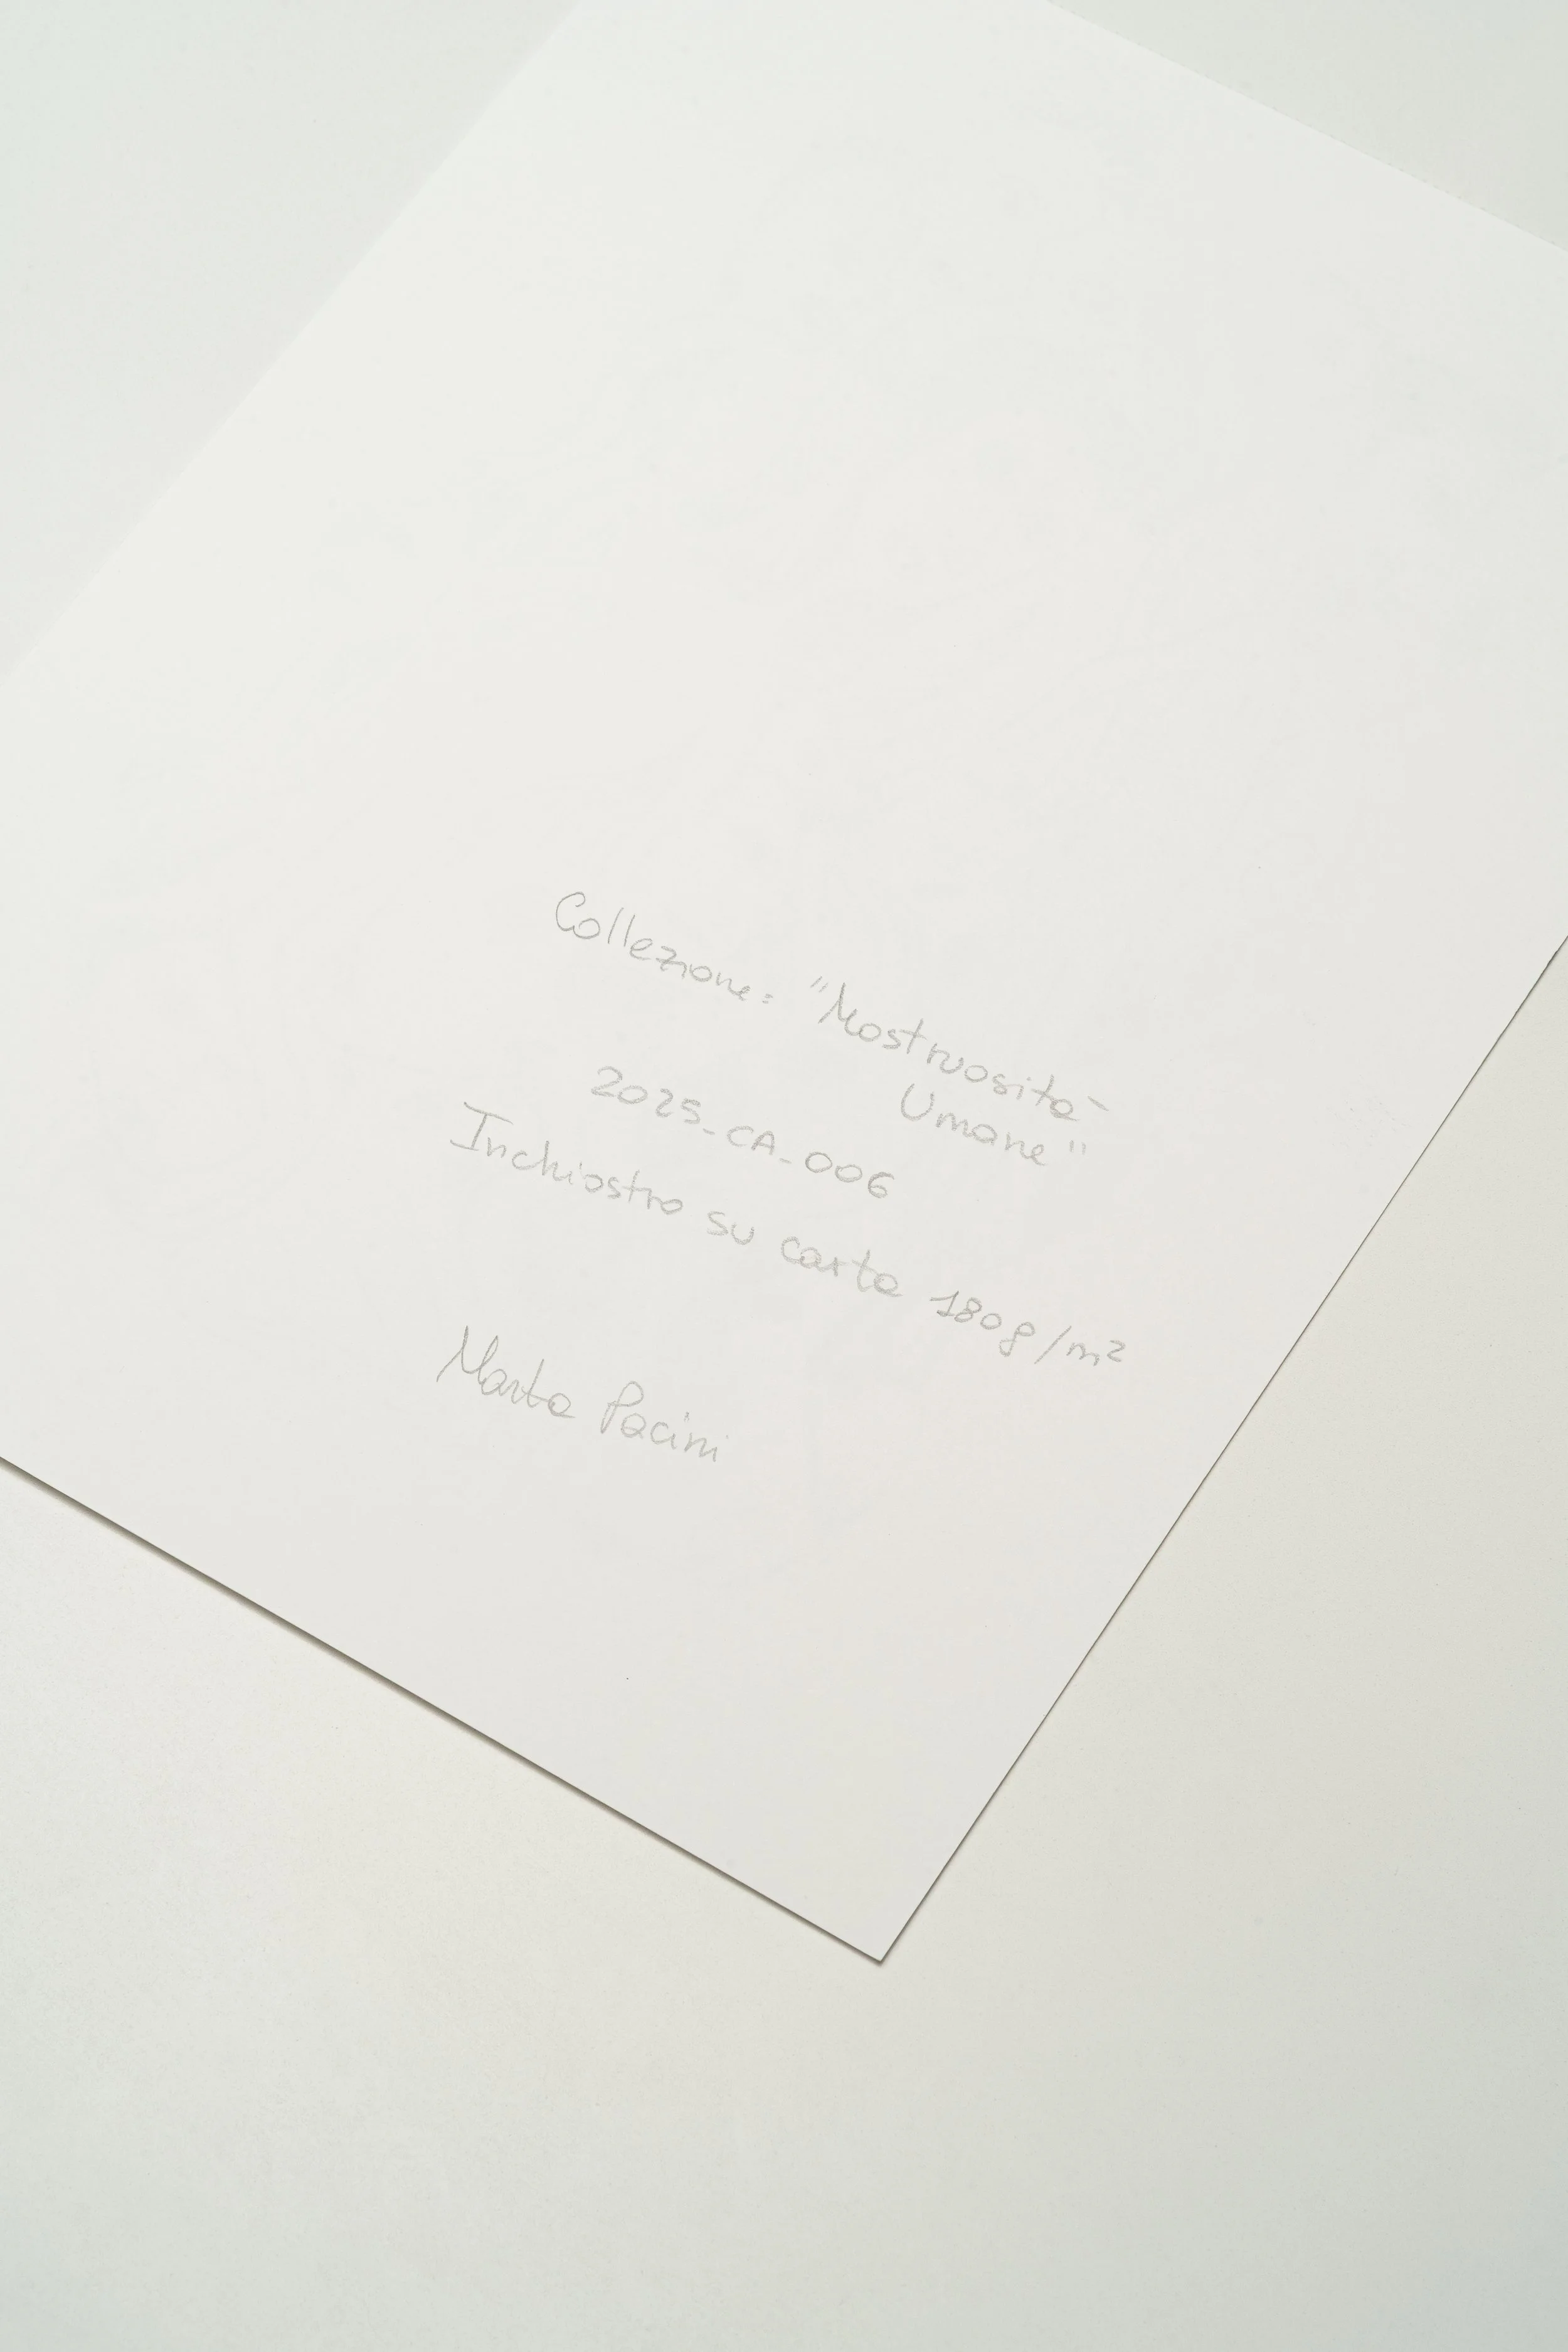 Collezione: "Mostruosità
Umane"
2025_CA_006
Inchiostro su carta 180g/m²
Marta Pacini